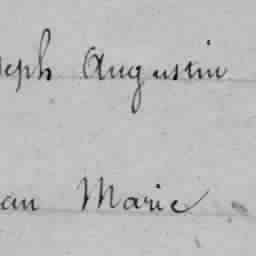 seph Augustin
ean Marie